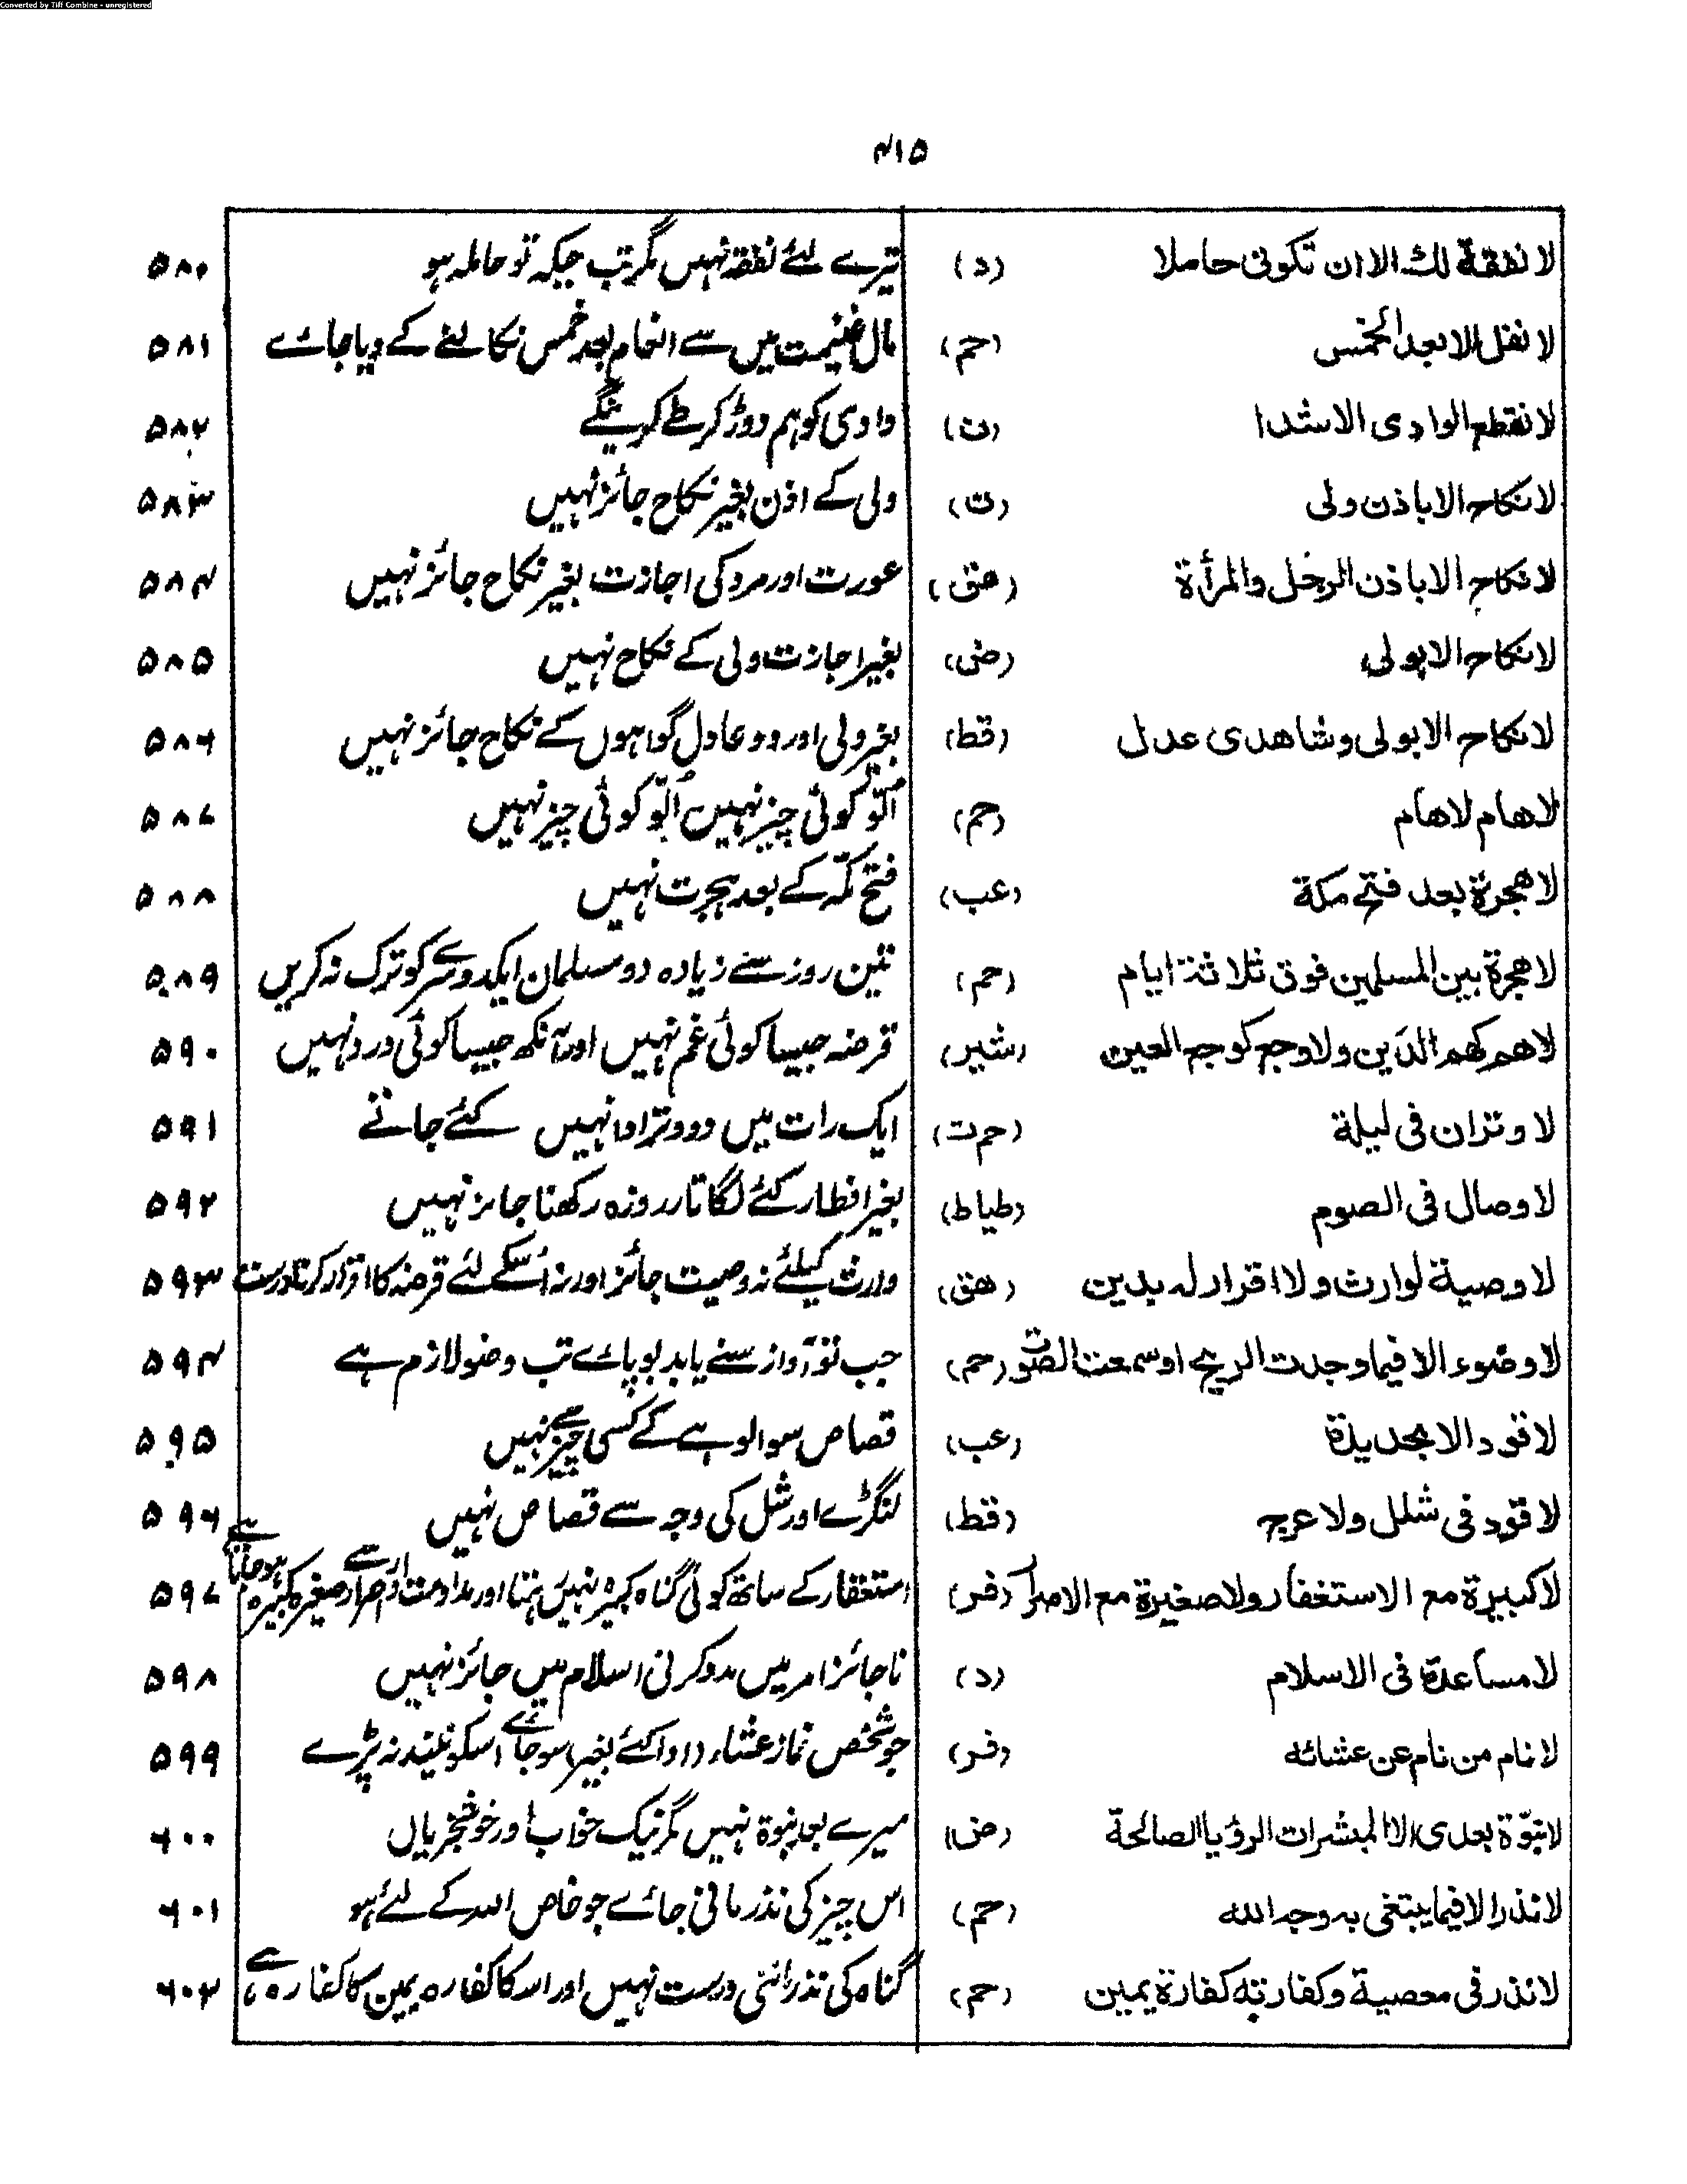 Converted by Tiff Combine - unregistered
۴۱۵
لا نفقة لك الا ان تكونى حاملا (د) تیرے لئے نفقہ نہیں مگر تب جبکہ تو حاملہ ہو ۵۸۰
لا نفل الا بعد الخمس (حم) مال غنیمت میں سے انعام بعد خمس نکالنے کے دیا جائے ۵۸۱
لا نقطع الوادى الا شدا (ن) وادی کو ہم دوڑ کر طے کرینگے ۵۸۲
لا نكاح الا باذن ولى (ت) ولی کے اذن بغیر نکاح جائز نہیں ۵۸۳
لا نكاح الا باذن الرجل والمرأة (هق) عورت اور مرد کی اجازت بغیر نکاح جائز نہیں ۵۸۴
لا نكاح الا بولى (ض) بغیر اجازت ولی کے نکاح نہیں ۵۸۵
لا نكاح الا بولى وشاهدى عدل (قط) بغیر ولی اور دو عادل گواہوں کے نکاح جائز نہیں ۵۸۶
لا هام لا هام (حم) اُلّو کوئی چیز نہیں اُلّو کوئی چیز نہیں ۵۸۷
لا هجرة بعد فتح مكة (عب) فتح مکّہ کے بعد ہجرت نہیں ۵۸۸
لا هجرة بين المسلمين فوق ثلاثة ايام (حم) تین روز سے زیادہ دو مسلمان ایکدوسرے کو ترک نہ کریں ۵۸۹
لا هم كهم الدَين ولا وجع كوجع العين (شیر) قرضہ جیسا کوئی غم نہیں اور آنکھ جیسا کوئی درد نہیں ۵۹۰
لا وتران فى ليلة (حم ت) ایک رات میں دو وتر ادا نہیں کئے جاتے ۵۹۱
لا وصال فى الصوم (طیاط) بغیر افطار کئے لگاتار روزہ رکھنا جائز نہیں ۵۹۲
لا وصية لوارث ولا اقرار له بدين (هق) وارث کیلئے نہ وصیت جائز اور نہ اُسکے لئے قرضہ کا اقرار کرنا درست ۵۹۳
لا وضوء الا فيما وجدت الريح او سمعت الصوت (حم) جب تو آواز سنے یا بدبو پائے تب وضو لازم ہے ۵۹۴
لا قود الا بحديدة (عب) قصاص سوا لوہے کے کسی چیز سے نہیں ۵۹۵
لا قود فى شلل ولا عرج (قط) لنگڑے اور شل کی وجہ سے قصاص نہیں ۵۹۶
لا كبيرة مع الاستغفار ولا صغيرة مع الاصرار (فر) استغفار کے ساتھ کوئی گناہ کبیرہ نہیں رہتا اور مداومت اور اصرار سے صغیرہ کبیرہ ہو جاتا ہے ۵۹۷
لا مساعدة فى الاسلام (د) ناجائز امر میں مدد کرنی اسلام میں جائز نہیں ۵۹۸
لا نام من نام عن عشائه (فر) جو شخص نماز عشاء (ادا کئے بغیر) سو جائے اسکو نیند نہ پڑے ۵۹۹
لا نبوّة بعدى الا المبشرات الرؤيا الصالحة (ض) میرے بعد نبوة نہیں مگر نیک خواب اور خوشخبریاں ۶۰۰
لا نذر الا فيما يبتغى به وجه الله (حم) اس چیز کی نذر مانی جائے جو خاص اللہ کے لئے ہو ۶۰۱
لا نذر فى معصية وكفارته كفارة يمين (حم) گناہ کی نذر ماننی درست نہیں اور اسکا کفارہ یمین کا کفارہ ہے ۶۰۲